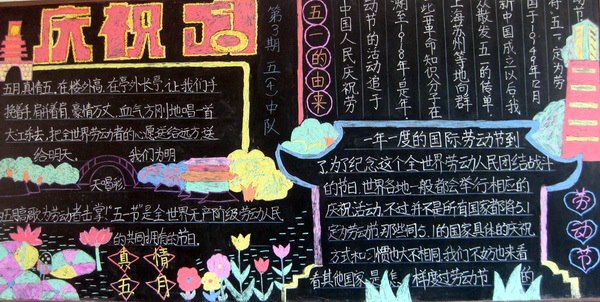 庆祝五一
第3期 五(4)中队
五月真情五、在楼外高、在亭外长亭,让我们手
挽着手,肩并着肩,豪情万丈、血气方刚地唱一首
大江东去,把全世界劳动者的心愿送给远方,送
给明天。 我们为明
天喝彩,
五一唱歌,为劳动者去掌!"五一节"是全世界无产阶级劳动人民
的共同拥有的节日。
真情
五月
五一的由来
中国人民庆祝劳
动节的活动追于
溯至1918年是年
些革命知识分子在
上海苏州等地向群
众散发五一的传单
新中国成立以后我
国于1949年12月
将五一定为劳
动节
一年一度的国际劳动节到
了,为了纪念这个全世界劳动人民团结战斗
的节日,世界各地一般都会举行相应的
庆祝活动,不过并不是所有国家都将5.1
定为劳动节,而那些同5.1的国家具体的庆祝
方式和习惯也大不相同,我们不妨也来看
看其他国家是怎样度过劳动节的
劳动节